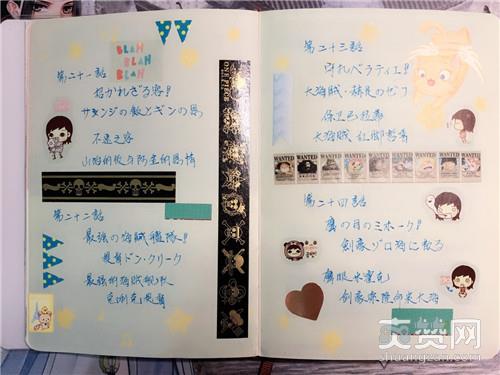 BLAH
BLAH
BLAH
第二十一話
招かれざる客!
サンジの飯とギンの恩
不速之客
山治的饭与阿金的恩情
第二十二話
最強の海賊艦隊!
提督ドン・クリーク
最强的海贼舰队
克利克提督
ONE PIECE
第二十三話
守れバラティエ!
大海賊・赫足のゼフ
保卫巴拉蒂
大海贼 红脚哲普
WANTED WANTED WANTED WANTED WANTED WANTED WANTED WANTED
第二十四話
鷹の目のミホーク!
剣豪ゾロ海に散る
鹰眼米霍克
剑豪索隆命丧大海
shuangzan.com